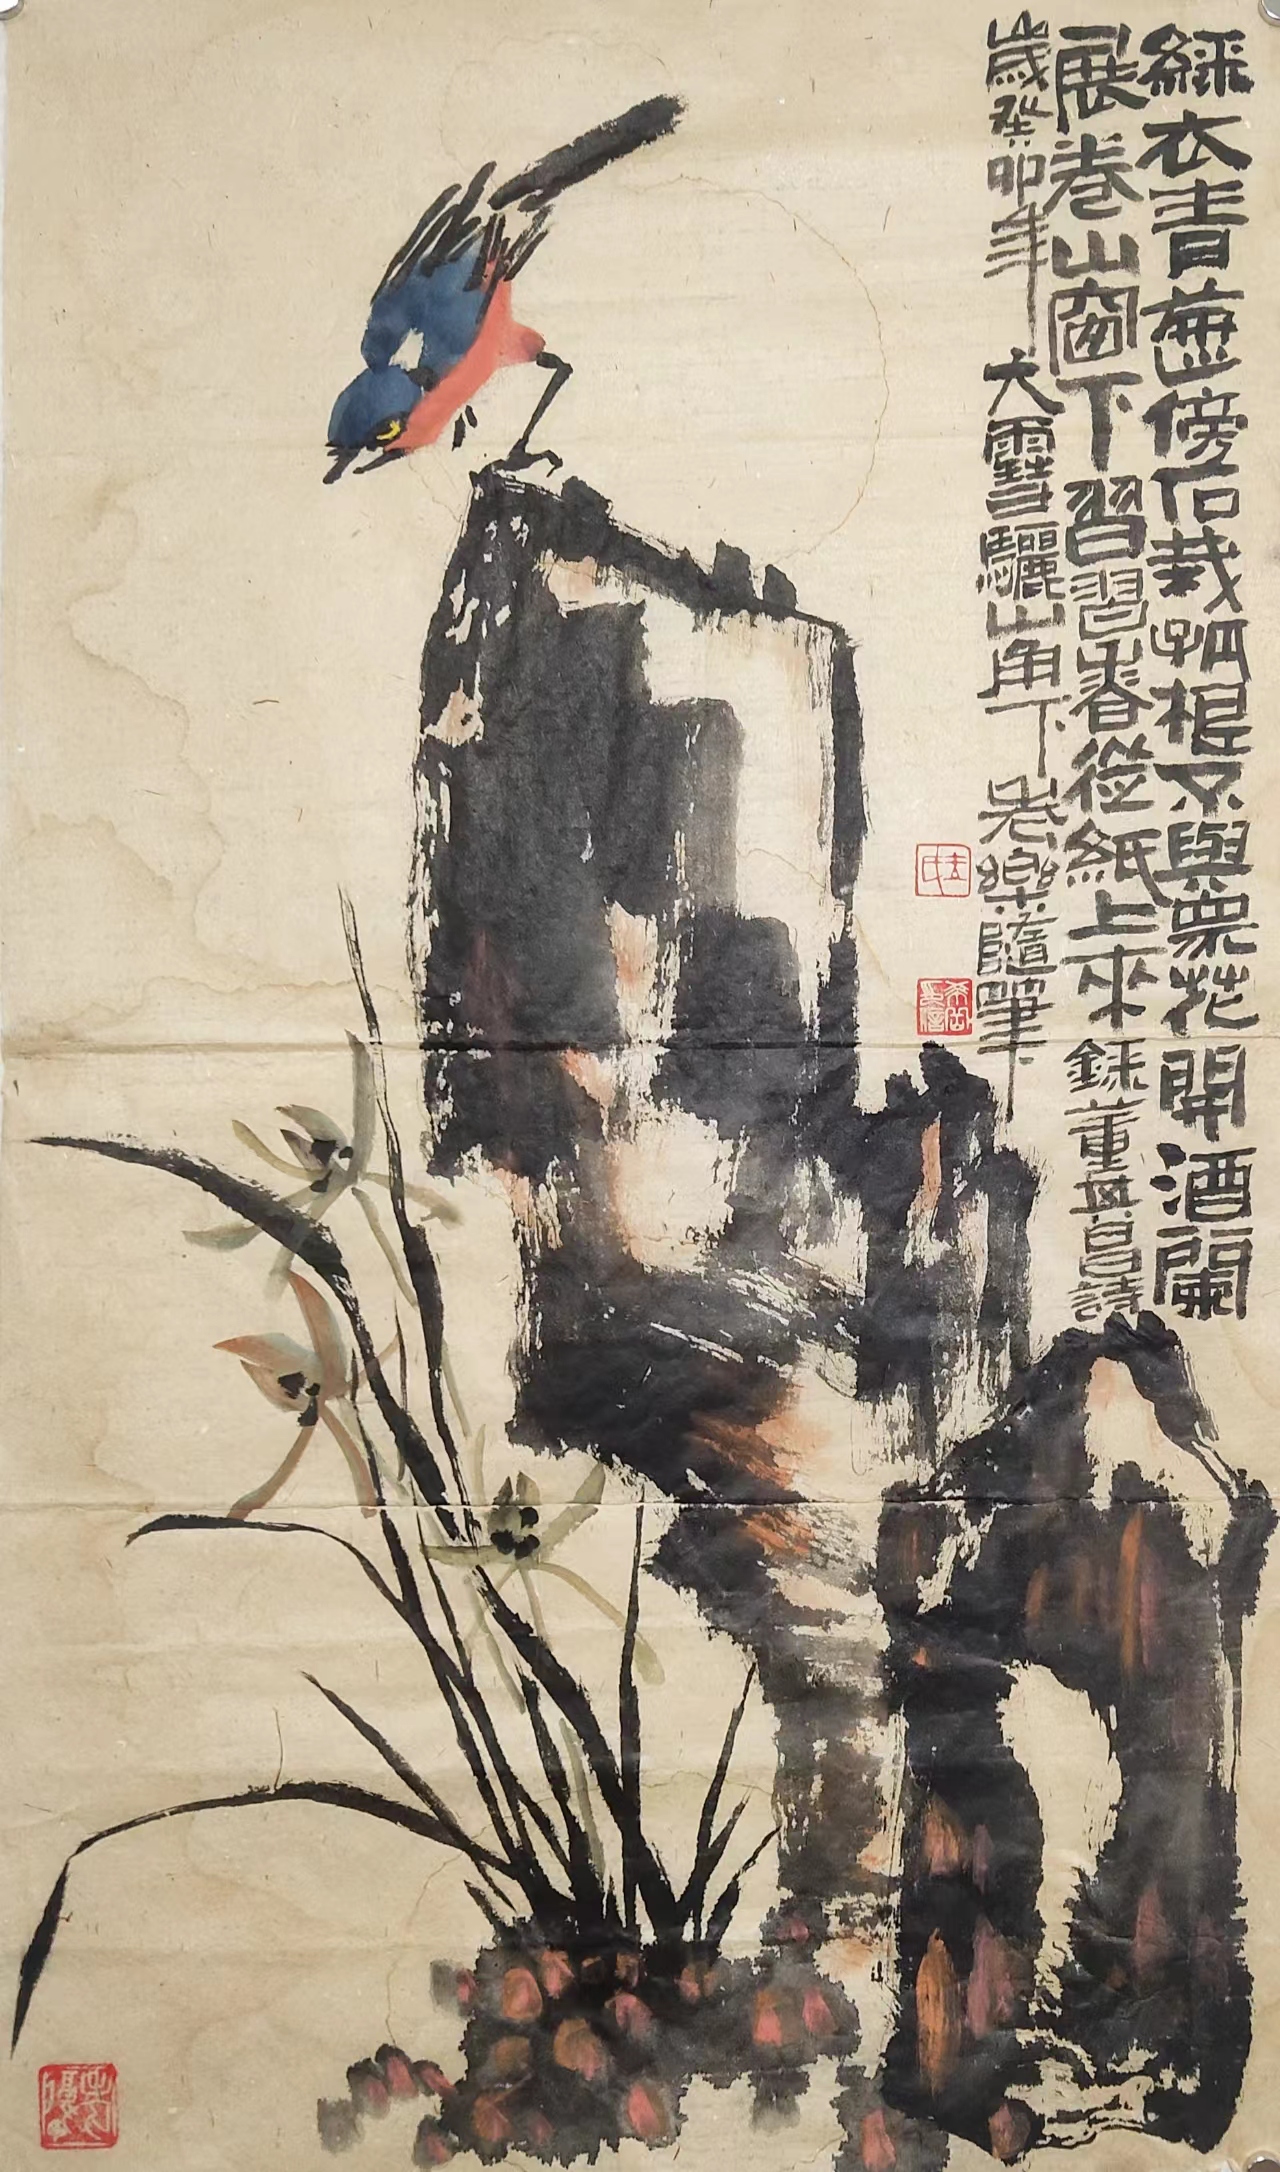 綠衣青傍石栽孤根不與衆花開酒闌
展卷山窗下習習香從紙上來錄董其昌詩
歲癸卯年大雪驪山角下老樂隨筆